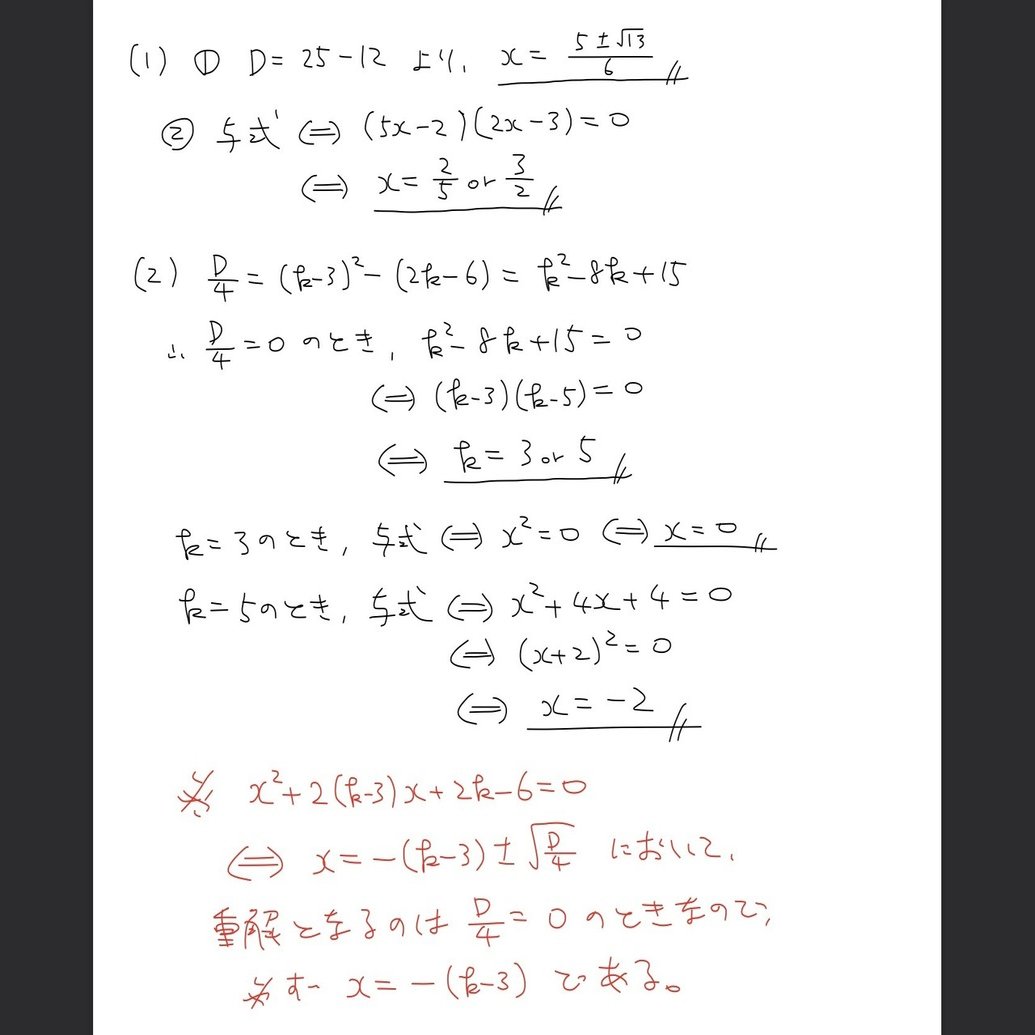 (1) ① D = 25 - 12 より、 x = (5 ± √13)/6
② 与式 ⇔ (5x - 2)(2x - 3) = 0
⇔ x = 2/5 or 3/2
(2) D/4 = (k-3)² - (2k-6) = k² - 8k + 15
∴ D/4 = 0 のとき, k² - 8k + 15 = 0
⇔ (k-3)(k-5) = 0
⇔ k = 3 or 5
k = 3 のとき, 与式 ⇔ x² = 0 ⇔ x = 0
k = 5 のとき, 与式 ⇔ x² + 4x + 4 = 0
⇔ (x+2)² = 0
⇔ x = -2
※ x² + 2(k-3)x + 2k - 6 = 0
⇔ x = -(k-3) ± √(D/4) において、
重解となるのは D/4 = 0 のときなので、
必ず x = -(k-3) である。